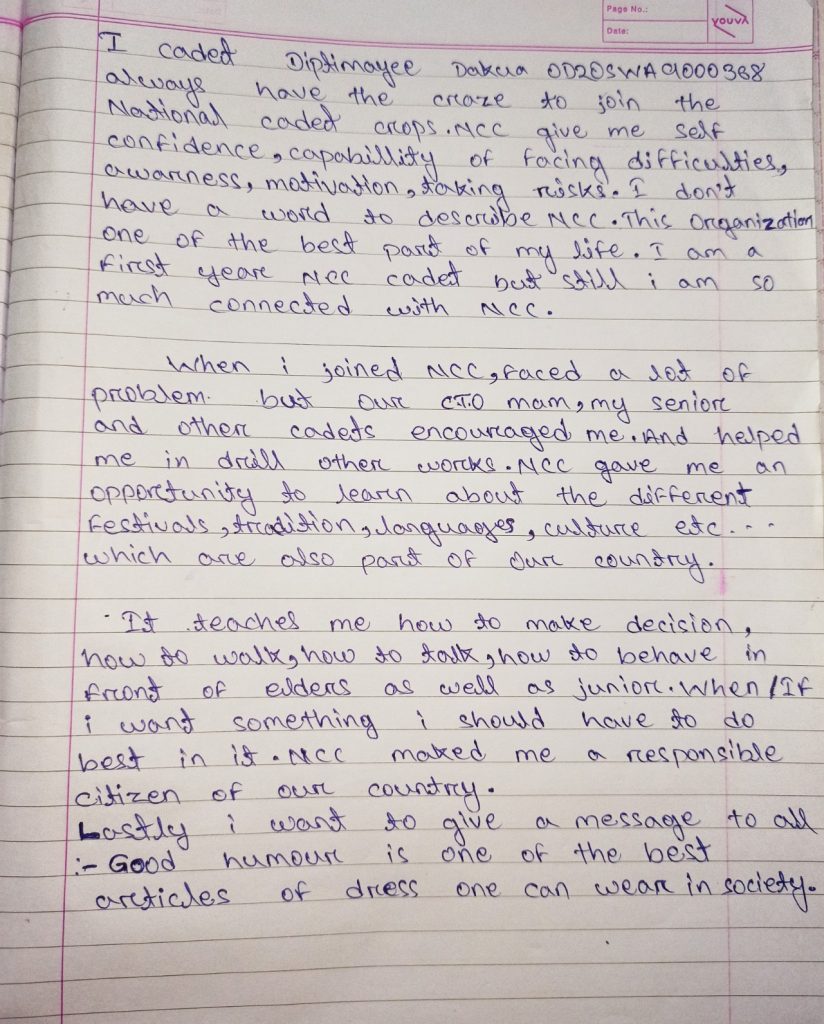 Page No.:
Date:
youva
I caded Diptimayee Dakua OD20SWA9000368
always have the craze to join the
National caded crops. NCC give me self
confidence, capabillity of facing difficulties,
awarness, motivation, taking risks. I don't
have a word to describe NCC. This Organization
one of the best part of my life. I am a
first year NCC cadet but still i am so
much connected with NCC.
When i joined NCC, faced a lot of
problem. but our CTO mam, my senior
and other cadets encouraged me. And helped
me in drill other works. NCC gave me an
opportunity to learn about the different
festivals, tradition, languages, culture etc...
which are also part of our country.
It teaches me how to make decision,
how to walk, how to talk, how to behave in
front of elders as well as junior. When/If
i want something i should have to do
best in it. NCC maked me a responsible
citizen of our country.
Lastly i want to give a message to all
:- Good humour is one of the best
articles of dress one can wear in society.